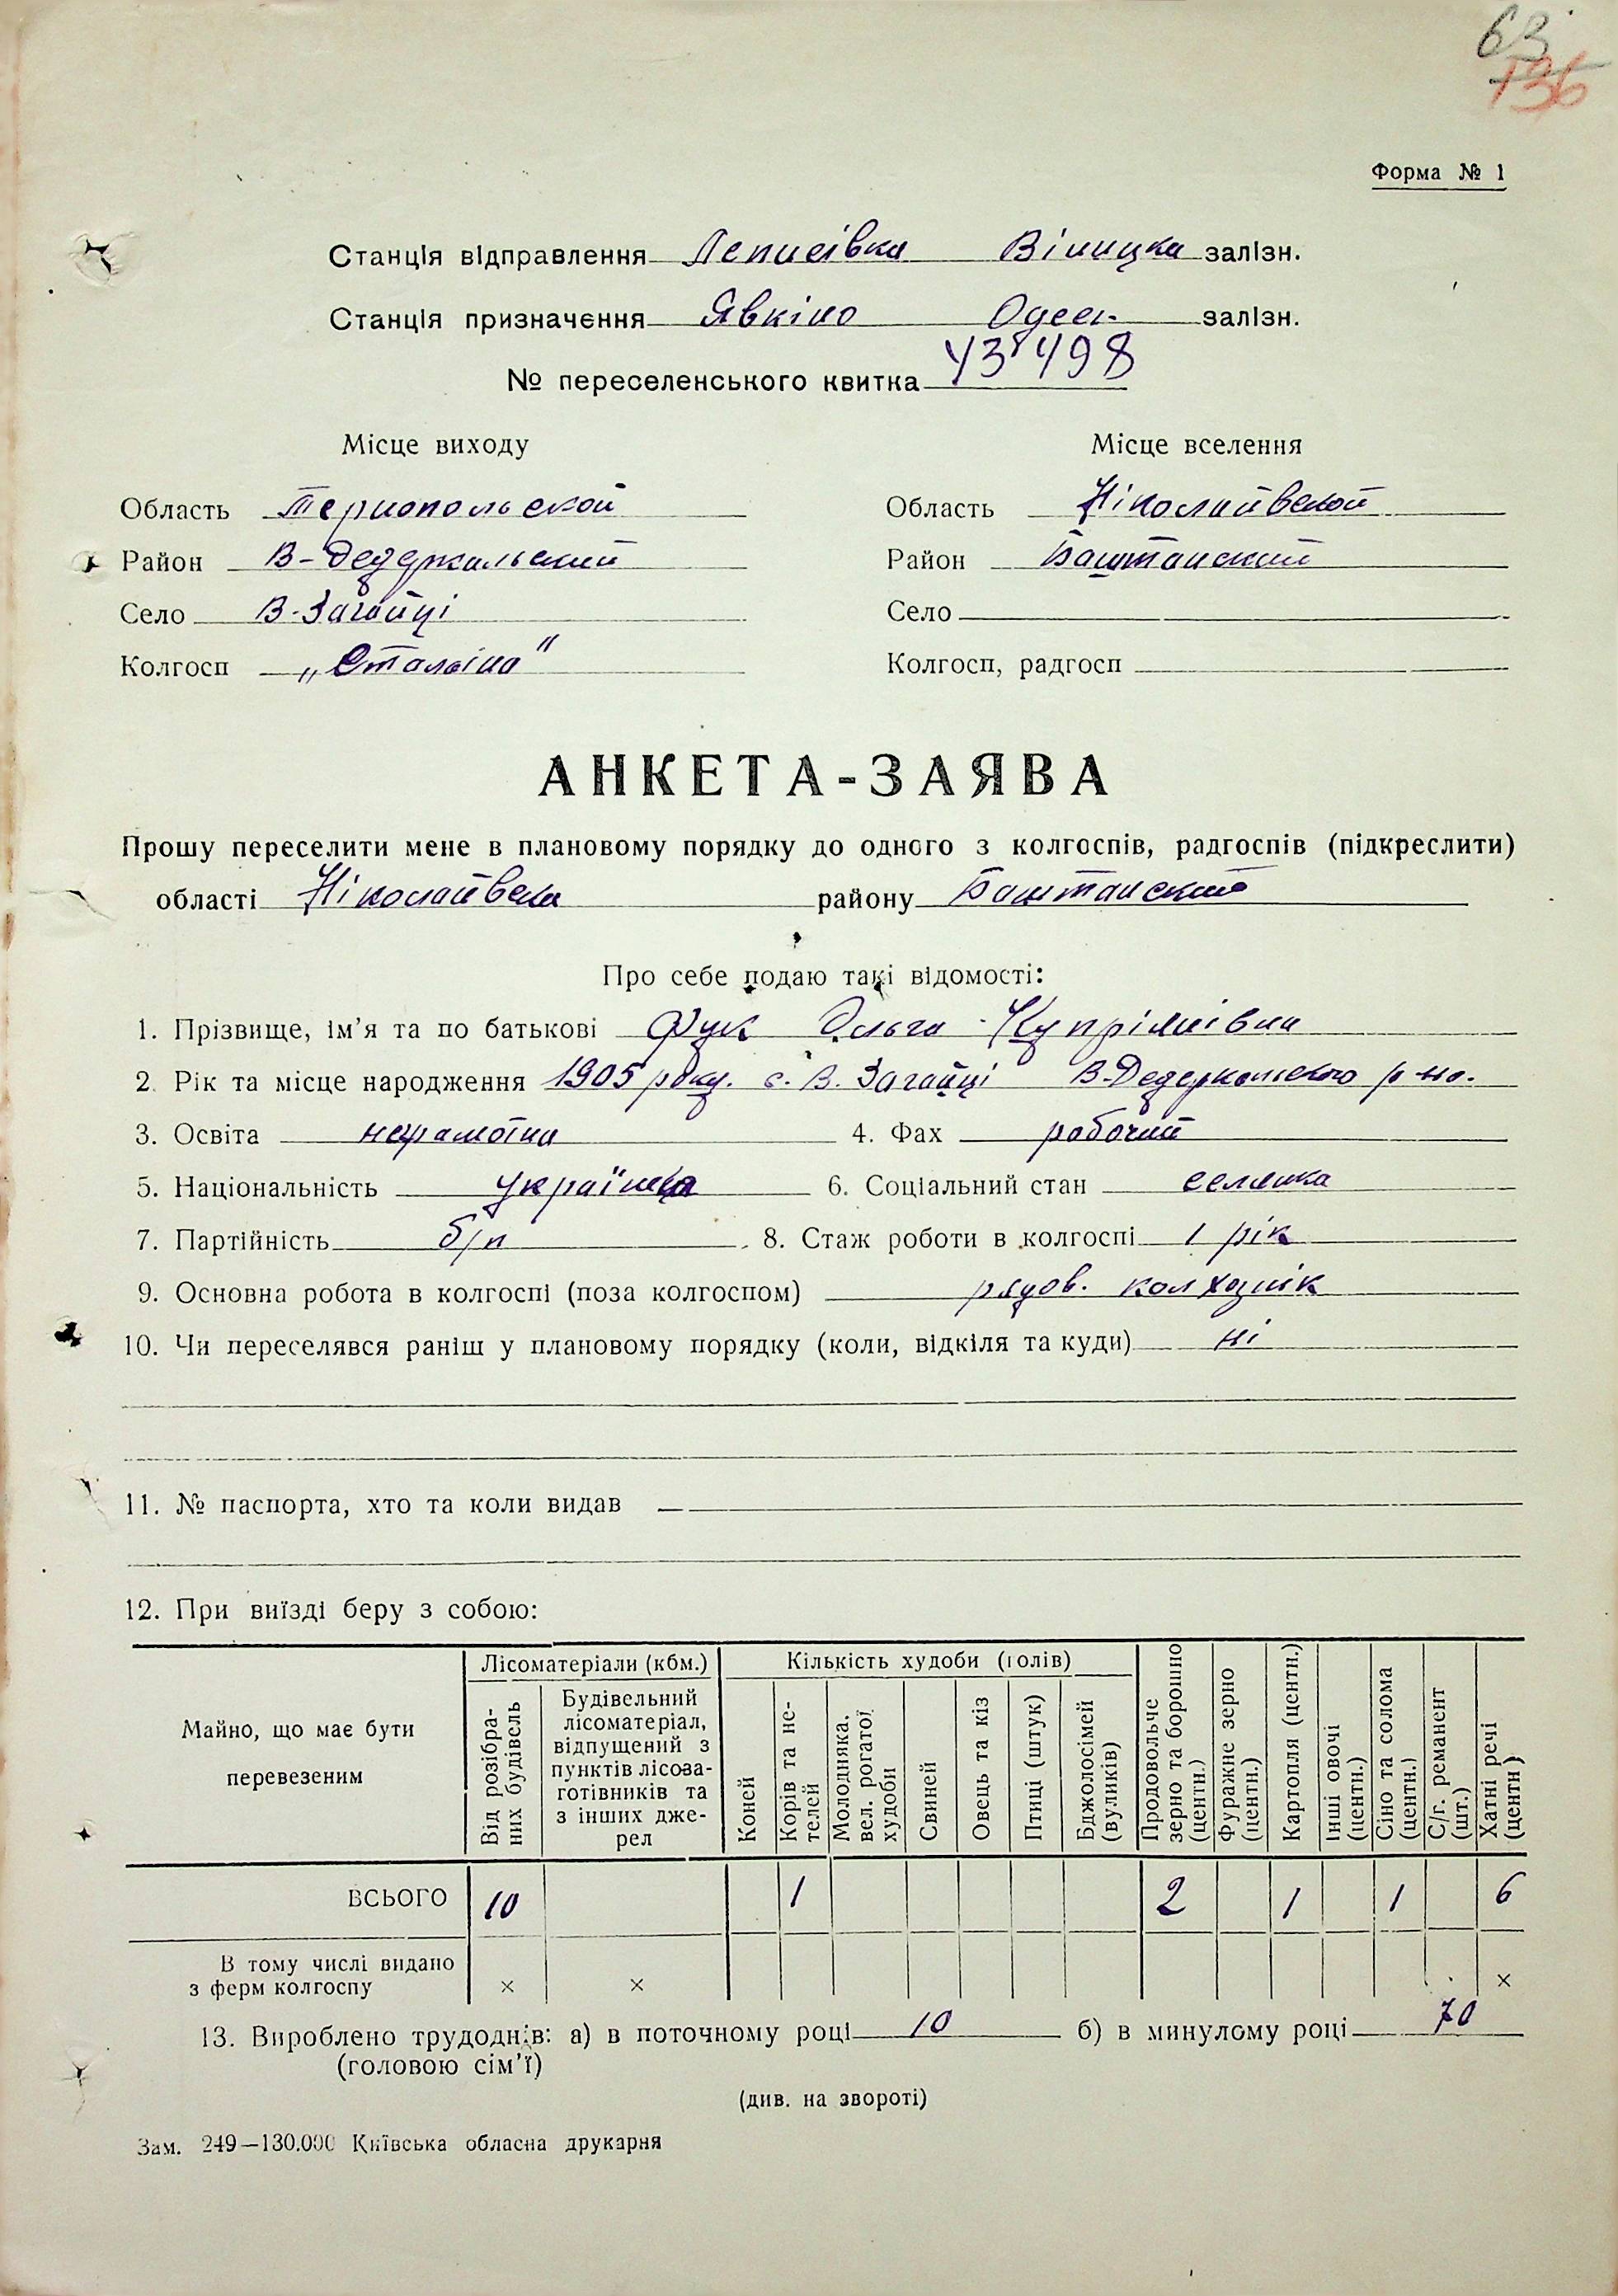 63
136
Форма № 1
Станція відправлення Леписівка Вінницка залізн.
Станція призначення Явкіно Одеск. залізн.
№ переселенського квитка 43498
Місце виходу Місце вселення
Область Тернопольской Область Ніколайвской
Район В-Дедеркальский Район Баштанский
Село В-Загайці Село
Колгосп „Сталіна" Колгосп, радгосп
АНКЕТА-ЗАЯВА
Прошу переселити мене в плановому порядку до одного з колгоспів, радгоспів (підкреслити)
області Ніколайвска району Баштанский
Про себе подаю такі відомості:
1. Прізвище, ім'я та по батькові Фук Ольга Купріянівна
2. Рік та місце народження 1905 року. с. В. Загайці В-Дедеркальского р-на.
3. Освіта неграмотна 4. Фах робочий
5. Національність українка 6. Соціальний стан селянка
7. Партійність б/п 8. Стаж роботи в колгоспі 1 рік
9. Основна робота в колгоспі (поза колгоспом) рядов. колхознік
10. Чи переселявся раніш у плановому порядку (коли, відкіля та куди) ні
11. № паспорта, хто та коли видав
12. При виїзді беру з собою:
Майно, що має бути перевезеним
Лісоматеріали (кбм.)
Від розібраних будівель
Будівельний лісоматеріал, відпущений з пунктів лісозаготівників та з інших джерел
Кількість худоби (голів)
Коней
Корів та нетелей
Молодняка, вел. рогатої худоби
Свиней
Овець та кіз
Птиці (штук)
Бджолосімей (вуликів)
Продовольче зерно та борошно (центн.)
Фуражне зерно (центн.)
Картопля (центн.)
Інші овочі (центн.)
Сіно та солома (центн.)
С/г. реманент (шт.)
Хатні речі (центн)
ВСЬОГО 10 1 2 1 1 6
В тому числі видано з ферм колгоспу × × ×
13. Вироблено трудоднів: а) в поточному році 10 б) в минулому році 70
(головою сім'ї)
(див. на звороті)
Зам. 249—130.000 Київська обласна друкарня